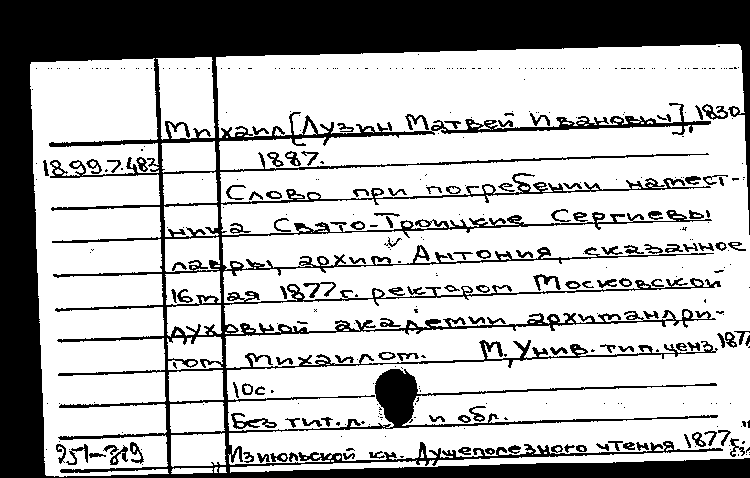 Михаил [Лузин, Матвей Иванович], 1830
18.99.7.483 1887.
Слово при погребении намест-
ника Свято-Троицкие Сергиевы
лавры, архим. Антония, сказанное
16 мая 1877 г. ректором Московской
духовной академии, архимандри-
том Михаилом. М, Унив. тип., ценз. 187
10с.
Без тит. л. и обл.
251-319 "Из июльской кн. Душеполезного чтения 1877 г."